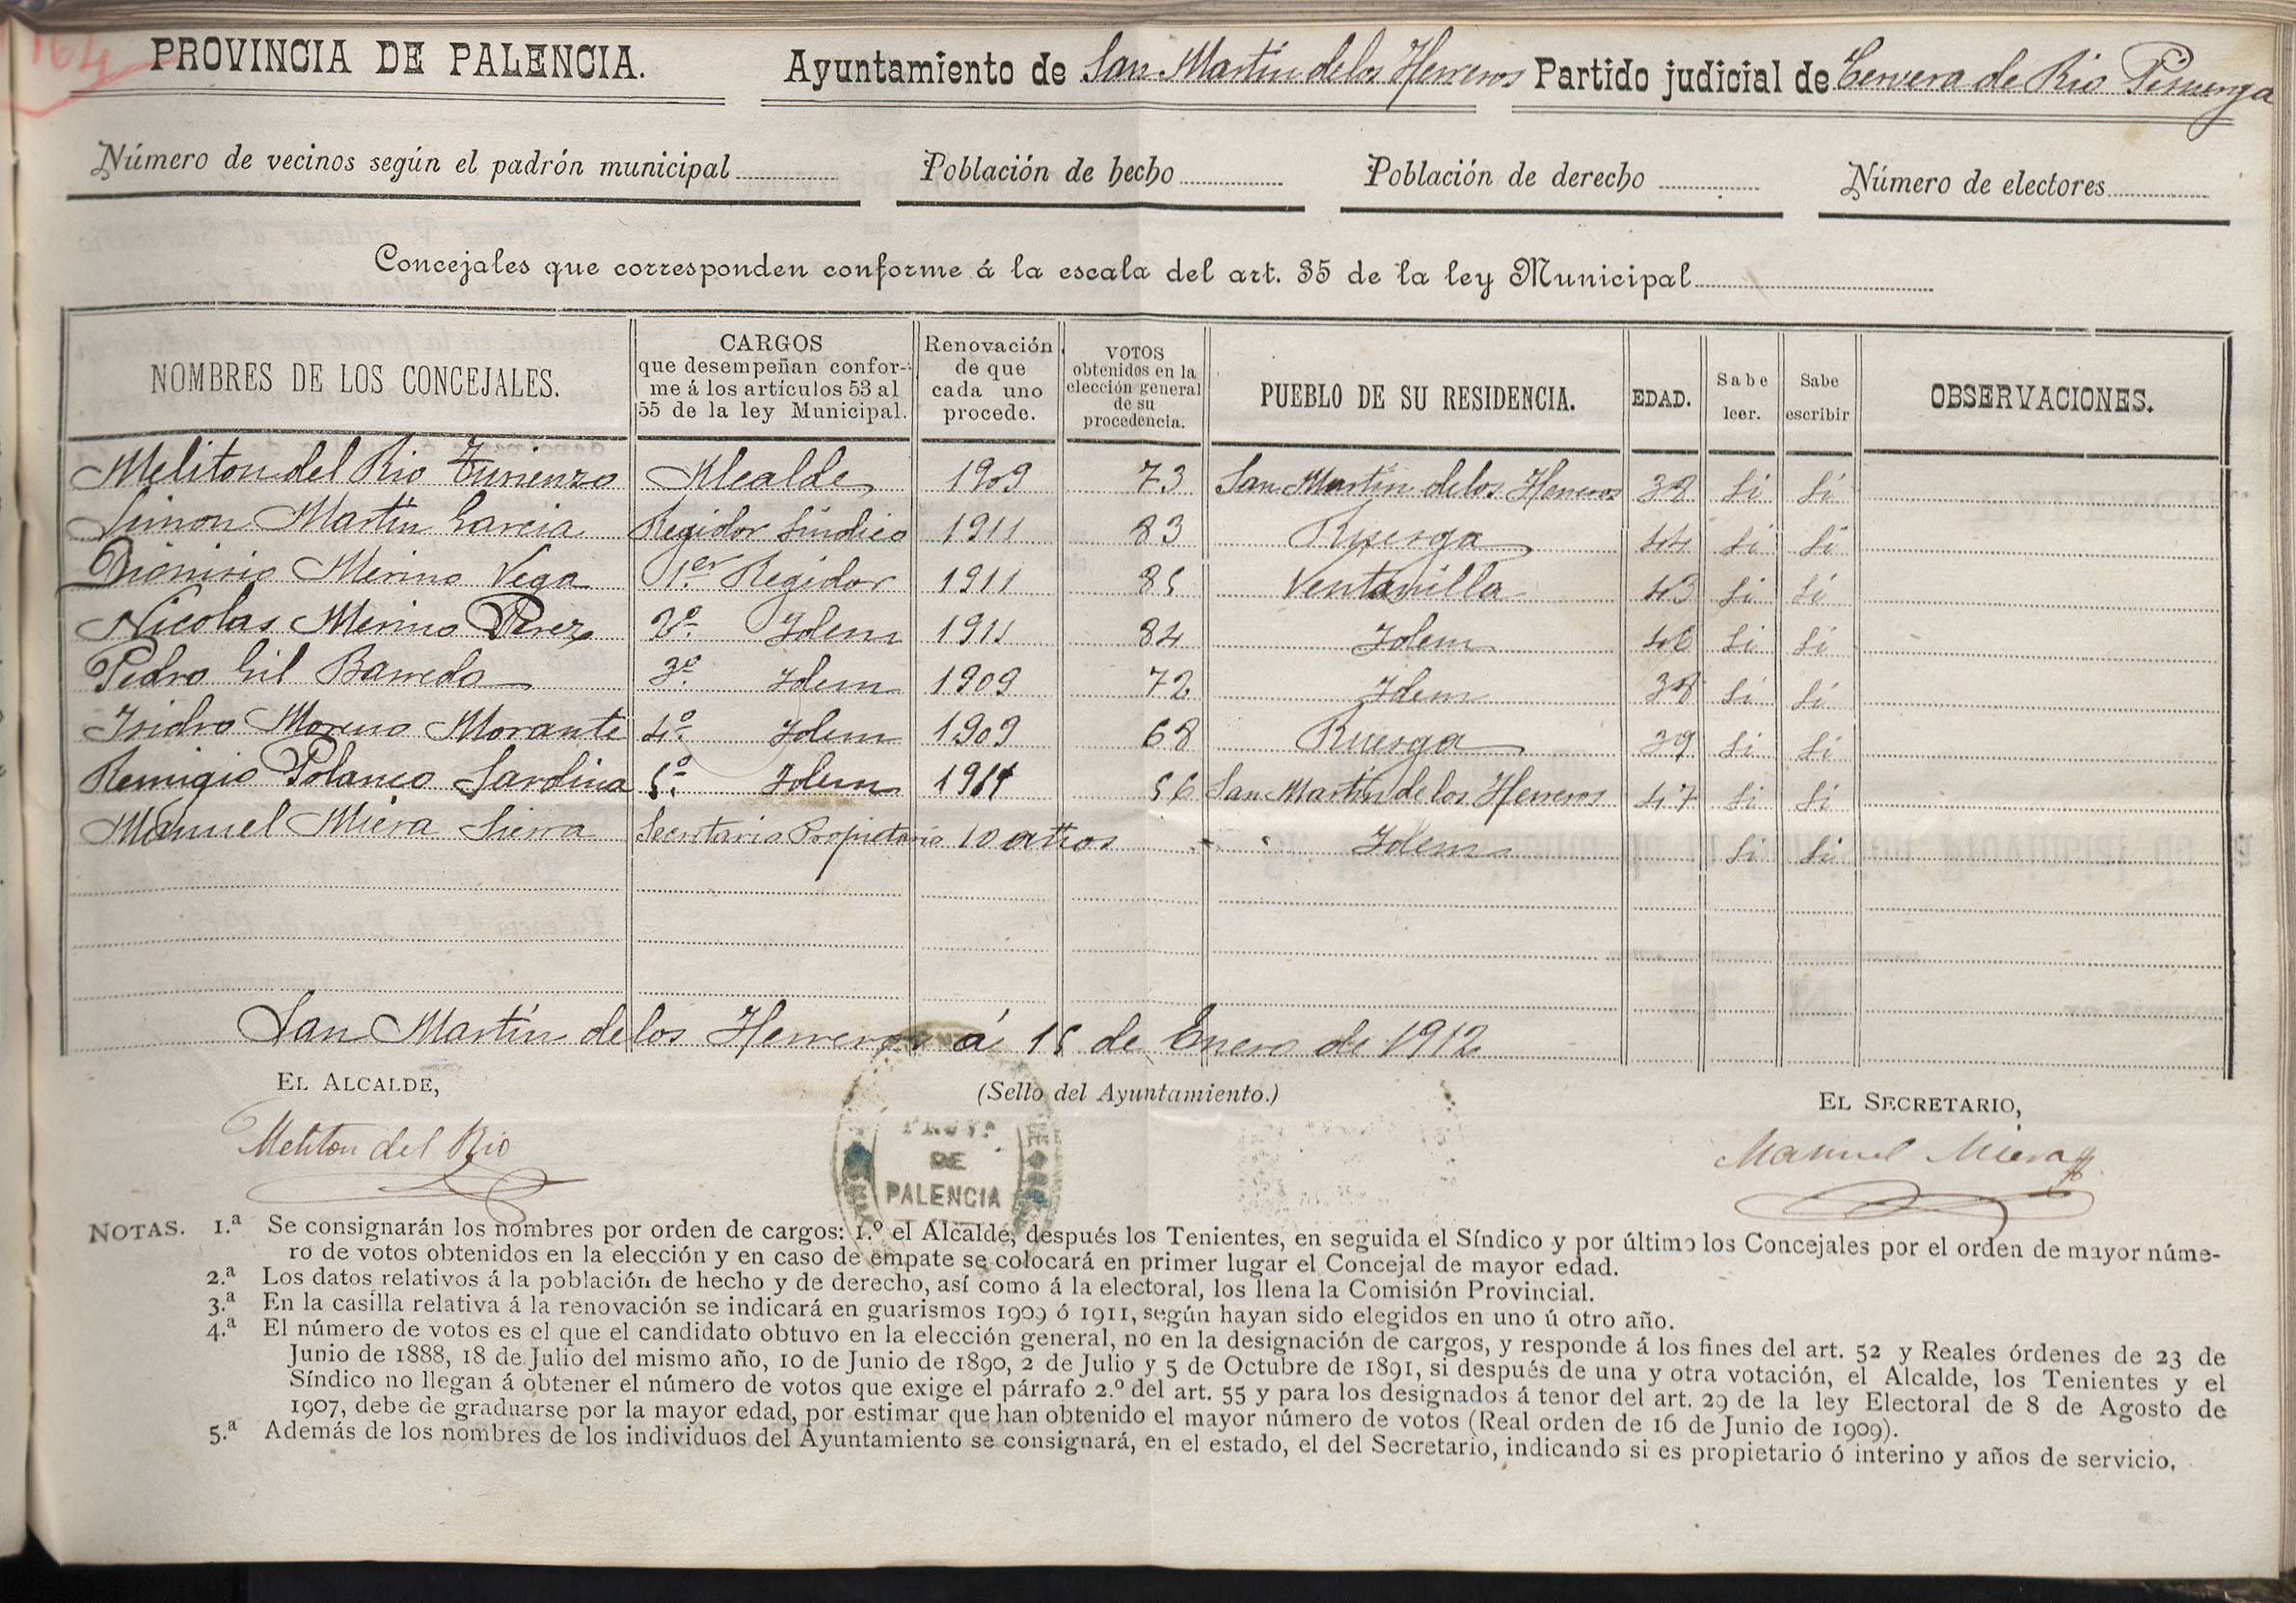 164
PROVINCIA DE PALENCIA. Ayuntamiento de San Martín de los Herreros Partido judicial de Cervera de Rio Pisuerga
Número de vecinos según el padrón municipal Población de hecho Población de derecho Número de electores
Concejales que corresponden conforme á la escala del art. 35 de la ley Municipal
NOMBRES DE LOS CONCEJALES. CARGOS que desempeñan conforme á los artículos 53 al 55 de la ley Municipal. Renovación de que cada uno procede. VOTOS obtenidos en la elección general de su procedencia. PUEBLO DE SU RESIDENCIA. EDAD. Sabe leer. Sabe escribir OBSERVACIONES.
Meliton del Rio Turienzo Alcalde 1909 73 San Martín de los Herreros 38 Si Si
Simon Martín Garcia Regidor Síndico 1911 83 Ruesga 44 Si Si
Dionisio Merino Vega 1er Regidor 1911 85 Ventanilla 43 Si Si
Nicolas Merino Perez 2º Idem 1911 84 Idem 46 Si Si
Pedro Gil Barreda 3º Idem 1909 72 Idem 38 Si Si
Isidro Moreno Morante 4º Idem 1909 68 Ruesga 39 Si Si
Remigio Polanco Sardina 5º Idem 1911 56 San Martín de los Herreros 47 Si Si
Manuel Miera Sierra Secretario Propietario 10 años - - Idem Si Si
San Martín de los Herreros á 15 de Enero de 1912
EL ALCALDE, (Sello del Ayuntamiento.) EL SECRETARIO,
Meliton del Rio Manuel Miera
DE
PALENCIA
NOTAS. 1.ª Se consignarán los nombres por orden de cargos: 1.º el Alcalde, después los Tenientes, en seguida el Síndico y por último los Concejales por el orden de mayor núme-
ro de votos obtenidos en la elección y en caso de empate se colocará en primer lugar el Concejal de mayor edad.
2.ª Los datos relativos á la población de hecho y de derecho, así como á la electoral, los llena la Comisión Provincial.
3.ª En la casilla relativa á la renovación se indicará en guarismos 1909 ó 1911, según hayan sido elegidos en uno ú otro año.
4.ª El número de votos es el que el candidato obtuvo en la elección general, no en la designación de cargos, y responde á los fines del art. 52 y Reales órdenes de 23 de
Junio de 1888, 18 de Julio del mismo año, 10 de Junio de 1890, 2 de Julio y 5 de Octubre de 1891, si después de una y otra votación, el Alcalde, los Tenientes y el
Síndico no llegan á obtener el número de votos que exige el párrafo 2.º del art. 55 y para los designados á tenor del art. 29 de la ley Electoral de 8 de Agosto de
1907, debe de graduarse por la mayor edad, por estimar que han obtenido el mayor número de votos (Real orden de 16 de Junio de 1909).
5.ª Además de los nombres de los individuos del Ayuntamiento se consignará, en el estado, el del Secretario, indicando si es propietario ó interino y años de servicio.